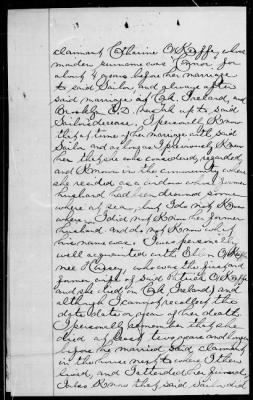 claimant Catharine O'Keeffe, whose
maiden surname was Connor for
about 4 years before her marriage
to said Sailor, and always after
said marriage at Cork, Ireland, and
Brooklyn up to said
Sailor's decease. I personally know
that at time of her marriage with said
Sailor and as long as I personally knew
her that she was considered, regarded,
and known in the community where
she resided as a widow whose former
husband had been drowned some
where at sea, but I do not know
where. I did not know her former
husband and do not know what
his name was. I was personally
well acquainted with Ellen O'Keeffe
nee, who was the first and
former wife of said Patrick O'Keeffe
and she died in Cork Ireland and
although I cannot recollect the
date or year of her death
I personally remember that she
died at least two years and longer
before he married said claimant
in the house next to where I then
lived, and I attended her funeral,
I also know that said Sailor did